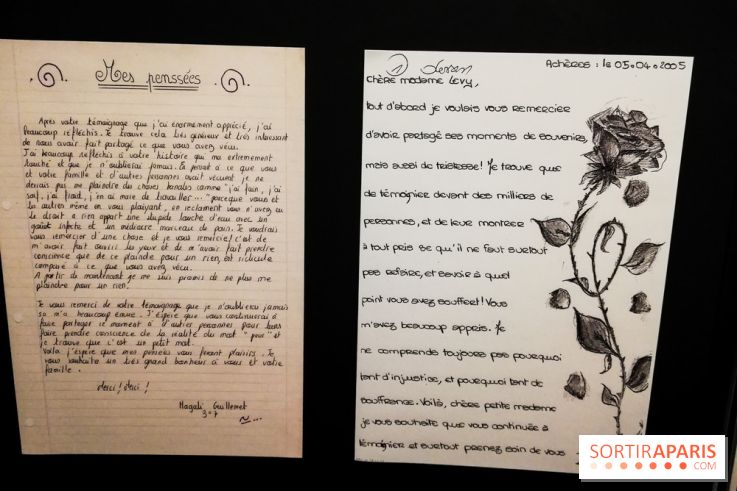 Mes penssées
Après votre témoignage que j'ai énormement apprécié, j'ai
beaucoup refléchis. Je trouve cela très généreux et très intéressant
de nous avoir fait partagé ce que vous avez vécu.
J'ai beaucoup refléchis à votre histoire qui ma extrèmement
touché et que je n'oublierai jamais. En pensant à ce que vous
et votre famille et d'autres personnes avait vécut je ne
devrais pas me plaindre de choses banales comme "j'ai faim, j'ai
soif, j'ai froid, j'en ai marre de travailler..." parceque vous et
les autres même en vous plaignant, en réclamant vous n'avez eu
le droit a rien appart une stupide louche d'eau avec un
goût infecte et un médiocre morceau de pain. Je voudrais
vous remercier d'une chose et je vous remercie! c'est de
m'avoir fait ouvrir les yeux et de m'avoir fait prendre
conscience que de ce plaindre pour un rien, est ridicule
comparé à ce que vous avez vécu.
A partir de maintenant je me suis promis de ne plus me
plaindre pour un rien!
Je vous remerci de votre témoignage que je n'oublierai jamais
sa m'a beaucoup émue. J'éspère que vous continuerai à
faire partager ce moment à d'autres personnes pour leurs
faire prendre conscience de la réalité du mot "peur" et
je trouve que c'est un petit mot.
Voila j'éspère que mes pensées vous feront plaisirs. Je
vous souhaite un très grand bonheur à vous et votre
famille.
Merci! Merci!
Magali Guillemet
3°7
Achères : le 05.04.2005
Chère madame Levy,
tout d'abord je voulais vous remercier
d'avoir partagé ses moments de souvenirs,
mais aussi de tristesse! Je trouve que
de témoigner devant des milliers de
personnes, et de leur montrer
à tout pris se qu'il ne faut surtout
pas refaire, et savoir à quel
point vous avez souffert! Vous
m'avez beaucoup appris. Je
ne comprends toujours pas pourquoi
tant d'injustice, et pourquoi tant de
souffrance. Voilà, chère petite madame
je vous souhaite que vous continuée à
témoigner et surtout prenez soin de vous
SORTIRAPARIS
.COM